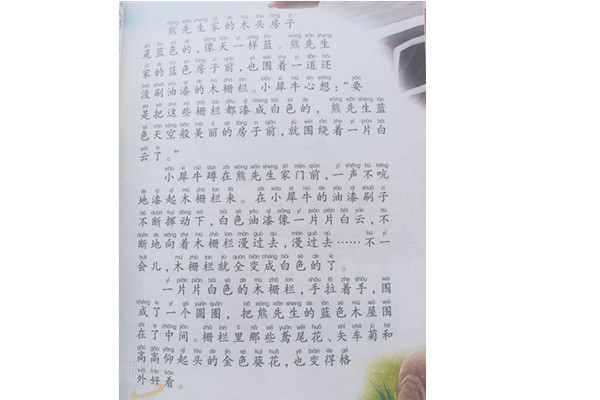 熊先生家的木头房子
是蓝色的，像天一样蓝。熊先生
家的蓝色房子前，也围着一道还
没刷油漆的木栅栏。小犀牛心想：“要
是把这些栅栏都漆成白色的，熊先生蓝
色天空般美丽的房子前，就围绕着一片白
云了。”
小犀牛蹲在熊先生家门前，一声不吭
地漆起木栅栏来。在小犀牛的油漆刷子
不断挥动下，白色油漆像一片片白云，不
断地向着木栅栏漫过去，漫过去……不一
会儿，木栅栏就全变成白色的了。
一片片白色的木栅栏，手拉着手，围
成了一个圆圈，把熊先生的蓝色木屋围
在了中间。栅栏里那些鸢尾花、矢车菊和
高高仰起头的金色葵花，也变得格
外好看。